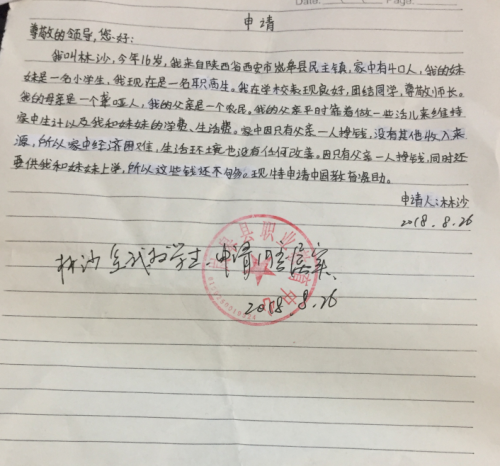 申请
尊敬的领导,您好:
我叫林沙,今年16岁,我来自陕西省西安市岚皋县民主镇,家中有4口人,我的妹
妹是一名小学生,我现在是一名职高生。我在学校表现良好,团结同学,尊敬师长。
我的母亲是一个聋哑人,我的父亲是一个农民。我的父亲平时靠着做一些活儿来维持
家中生计以及我和妹妹的学费、生活费。家中因只有父亲一人挣钱,没有其他收入来
源,所以家中经济困难,生活环境也没有任何改善。因只有父亲一人挣钱,同时还
要供我和妹妹上学,所以这些钱还不够。现特申请中国教育资助。
申请人:林沙
2018.8.26
林沙 学生.申请
2018.8.26
县职业